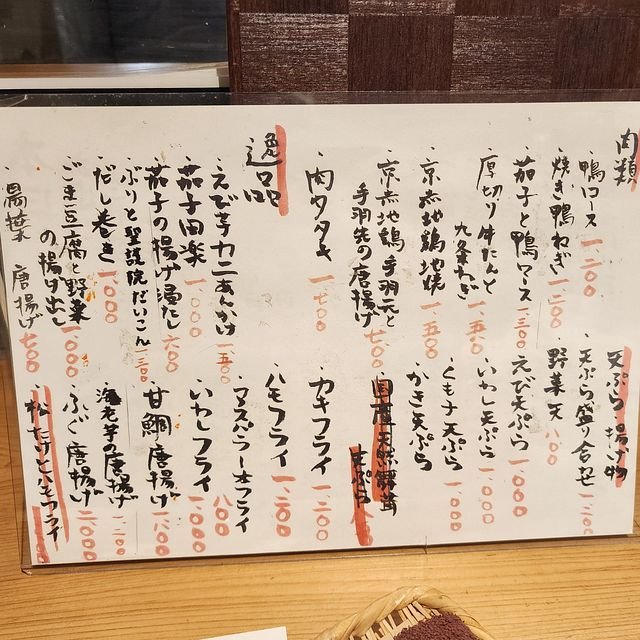 肉類
・鴨ロース 一、二〇〇
・焼き鴨ねぎ 一、二〇〇
・茄子と鴨ロース 一、三〇〇
・厚切り牛たんと九条ねぎ 一、五〇〇
・京赤地鶏地焼 一、五〇〇
・京赤地鶏手羽元と手羽先の唐揚げ 七〇〇
・肉タタキ 一、七〇〇
逸品
・えび芋カニあんかけ 一、五〇〇
・茄子田楽 一、〇〇〇
・茄子の揚げ湯だし 六〇〇
・ぶりと聖護院だいこん 一、三〇〇
・だし巻き 一、〇〇〇
・ごま豆腐と野菜の揚げ出し 一、〇〇〇
・湯葉 唐揚げ 七〇〇
天ぷら 揚げ物
・天ぷら盛り合せ
・野菜天 八〇〇
・えび天ぷら 一、〇〇〇
・いわし天ぷら 一、〇〇〇
・くもナ天ぷら 一、〇〇〇
・かき天ぷら
・国産天然舞茸天ぷら
・カキフライ 一、二〇〇
・ハモフライ 一、二〇〇
・アスパラ一本フライ 八〇〇
・いわしフライ 一、〇〇〇
・甘鯛唐揚げ
・海老芋の唐揚げ
・ふぐ唐揚げ 二、〇〇〇
・松たけとハモフライ